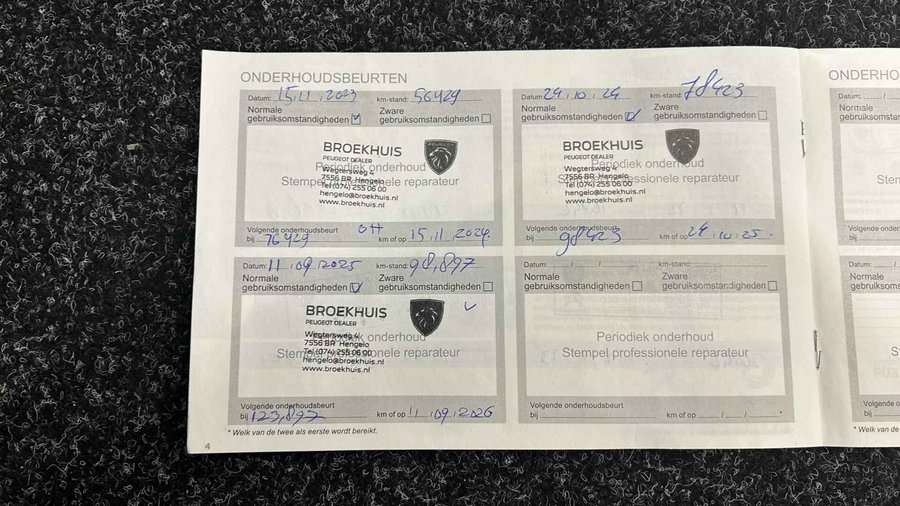 ONDERHOUDSBEURTEN
Datum: 15.11.2023 km-stand: 56429
Normale gebruiksomstandigheden Zware gebruiksomstandigheden
BROEKHUIS
PEUGEOT DEALER
Wegtersweg 4
7556 BR Hengelo
Tel (074) 255 06 00
hengelo@broekhuis.nl
www.broekhuis.nl
Periodiek onderhoud
Stempel professionele reparateur
Volgende onderhoudsbeurt
bij 76429 km of op 15.11.2024
Datum: 24.10.24 km-stand: 78423
Normale gebruiksomstandigheden Zware gebruiksomstandigheden
BROEKHUIS
PEUGEOT DEALER
Wegtersweg 4
7556 BR Hengelo
Tel (074) 255 06 00
hengelo@broekhuis.nl
www.broekhuis.nl
Periodiek onderhoud
Stempel professionele reparateur
Volgende onderhoudsbeurt
bij 98423 km of op 24.10.25
Datum: 11/09/2025 km-stand: 98,897
Normale gebruiksomstandigheden Zware gebruiksomstandigheden
BROEKHUIS
PEUGEOT DEALER
Wegtersweg 4
7556 BR Hengelo
Tel (074) 255 06 00
hengelo@broekhuis.nl
www.broekhuis.nl
Periodiek onderhoud
Stempel professionele reparateur
Volgende onderhoudsbeurt
bij 123,897 km of op 11/09/2026
Datum: / / km-stand:
Normale gebruiksomstandigheden Zware gebruiksomstandigheden
Periodiek onderhoud
Stempel professionele reparateur
Volgende onderhoudsbeurt
bij km of op / / *
* Welk van de twee als eerste wordt bereikt.
4
ONDERHO
Datum: /
Normale
gebruiksomst
Volgende onde
bij
Datum: /
Normale
gebruiksomst
Volgende onde
bij
* Welk van de tw